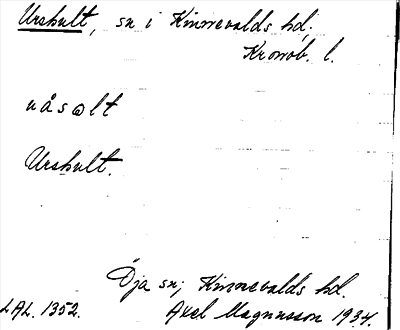 Urshult, sn i Kinnevalds hd.
Kronob. l.
uåsɷlt
Urshult.
Öja sn; Kinnevalds hd.
LAL. 1352. Axel Magnusson 1934.